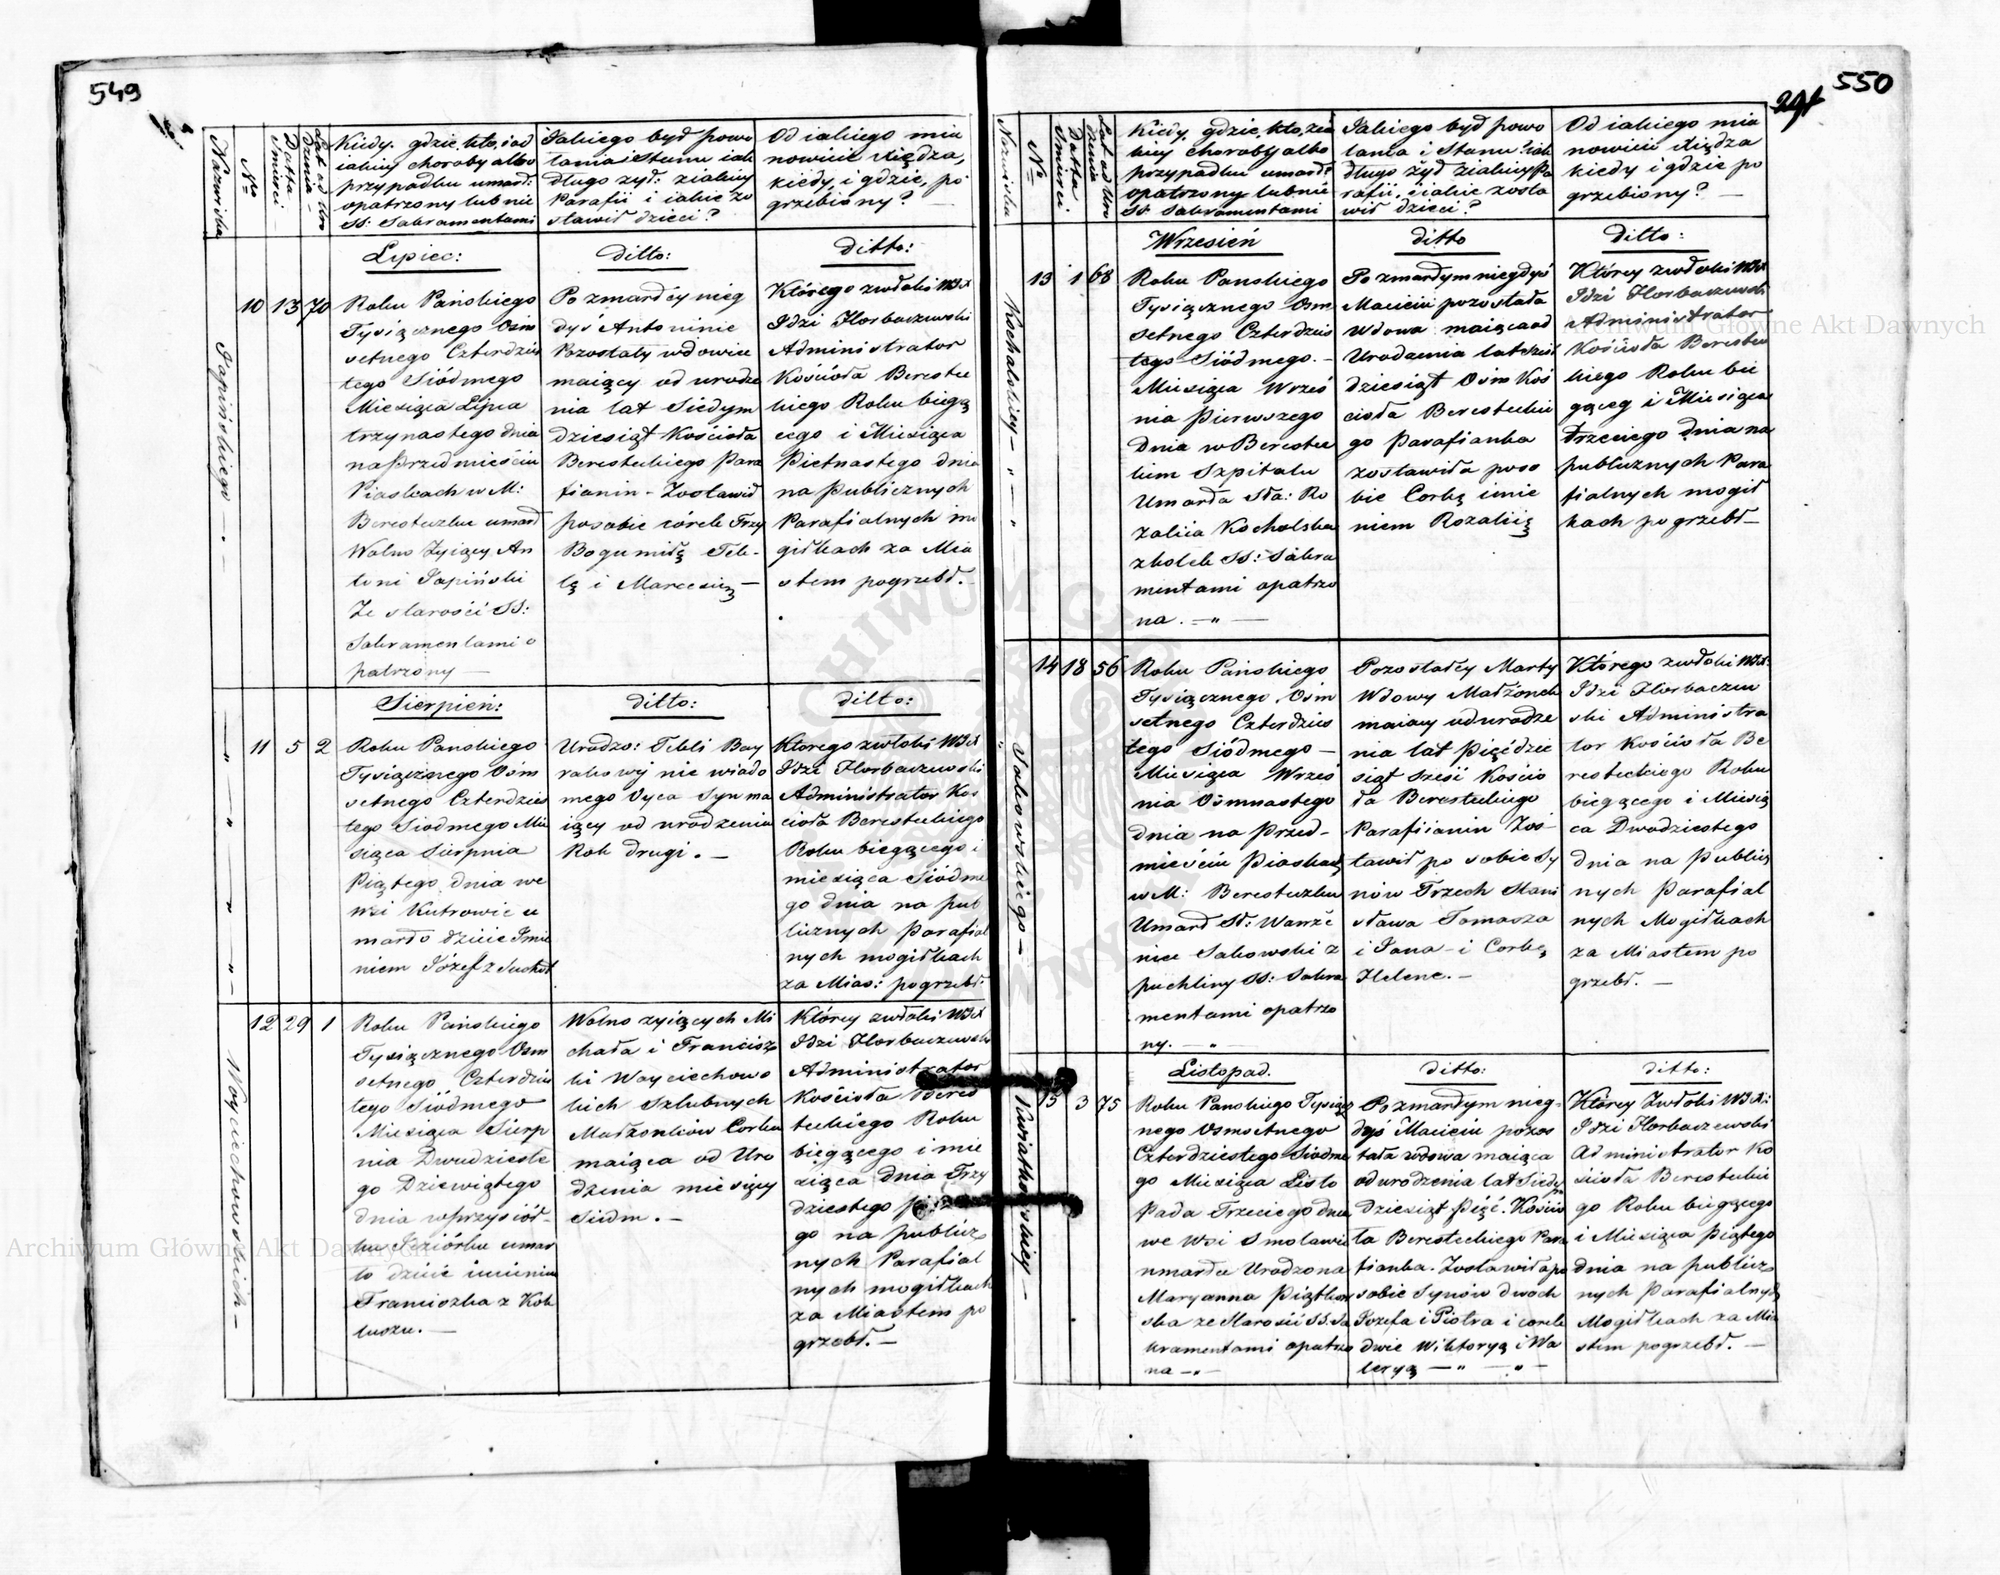 549
Nazwiska
Nro
Datta Śmierci
Lat od Uro
dzenia
Kiedy, gdzie, kto, i od
iakiey choroby albo
przypadku umarł:
opatrzony lub nie
SS: Sakramentami
Jakiego był powo
łania i stanu iak
długo żył: z iakiey
Parafii i iakie zo
stawił dzieci?
Od iakiego mia
nowicie Xiędza,
kiedy, i gdzie, po
grzebiony?
Lipiec:
ditto:
ditto:
Japińskiego
10
13
70
Roku Pańskiego
Tysiącznego Ośm
setnego Czterdzies
tego Siódmego
Miesiąca Lipca
trzynastego dnia
na Przedmieściu
Piaskach w M:
Beresteczku umarł
Wolno Żyiący An
toni Japiński
Ze starości SS:
Sakramentami o
patrzony —
Po zmarłey nieg
dyś Antoninie
Pozostały wdowiec
maiący od urodze
nia lat Siedym
dziesiąt Kościoła
Beresteckiego Para
fianin - Zostawił
po sobie córek Trzy
Bogumiłę Tek-
lę i Marcesię —
Którego zwłoki WJX
Idzi Horbaczewski
Administrator
Kościoła Berestec
kiego Roku bieżą
cego i Miesiąca
Pietnastego dnia
na Publicznych
Parafialnych mo
giłkach za Mia
stem pogrzebł. -
Sierpień:
ditto:
ditto:
11
5
2
Roku Pańskiego
Tysiącznego Ośm
setnego Czterdzies
tego Siodmego Mie
siąca Sierpnia
Piątego dnia we
wsi Kutrowie u
marło dziecie Imie
niem Józef z Suchot
Urodzo: Tekli Bay
rakowy nie wiado
mego Oyca Syn ma
iący od urodzenia
Rok drugi. —
Ktorego zwłoki WJX
Idzi Horbaczewski
Administrator Koś
cioła Beresteckiego
Roku bieżącego i
miesiąca Siódme
go dnia na pub
licznych Parafial
nych mogiłkach
za Mias: pogrzebł:
Woyciechowskich —
12
29
1
Roku Pańskiego
Tysiącznego Ośm
setnego Czterdzies
tego Siódmego
Miesiąca Sierp
nia Dwudzieste
go Dziewiątego
dnia w przysiół-
ku Jeziórku umar
ło dziecie imieniem
Franciszka z Kok
luszu. —
Wolno żyiących Mi
chała i Francisz
ki Woyciechows
kich szlubnych
Małżonków Corka
maiąca od Uro
dzenia miesięcy
Siedm. —
Którey zwłoki WJX
Idzi Horbaczewski
Administrator
Kościoła Beres
teckiego Roku
bieżącego i mie
siąca dnia Trzy
dziestego
go na publicz
nych Parafial
nych mogiłkach
za Miastem po
grzebł. —
550
Nazwiska
Nro
Datta Śmierci.
Lat od Uro
dzenia
Kiedy, gdzie, kto, z ia
kiey choroby albo
przypadku umarł?
opatrzony lub nie
SS: Sakramentami
Jakiego był powo
łania i Stanu? iak
długo żył z iakiey Pa
rafii, i iakie zosta
wił dzieci?
Od iakiego mia
nowicie Xiędza
kiedy i gdzie po
grzebiony? —
Wrzesień
ditto
ditto:
Kochalskiey
13
1
68
Roku Panskiego
Tysiącznego Ośm
setnego Czterdzies
tego Siódmego. -
Miesiąca Wrześ
nia Pierwszego
Dnia w Berestec
kim Szpitalu
Umarła Sła: Ro
zalija Kochalska
z kolek SS: Sakra
mentami opatrzo
na. — " —
Po zmarłym niegdyś
Macieiu pozostała
Wdowa maiąca od
Urodzenia lat sześć
dziesiąt Ośm Koś
cioła Berestecki
go Parafianka
zostawiła po so
bie Corkę imie
niem Rozaliią
Którey zwłoki WJX
Idzi Horbaczewski
Administrator
Kościoła Berestec
kiego Roku bie
gąceg i Miesiąca
Trzeciego dnia na
publicznych Para
fialnych mogił
kach pogrzebł —
Sakowskiego —
14
18
56
Roku Pańskiego
Tysiącznego Ośm
setnego Czterdzies
tego Siódmego —
Miesiąca Wrześ
nia Osmnastego
dnia na Przed-
mieściu Piaskach
w M: Beresteczku
Umarł Sł: Wawrze
niec Sakowski z
puchliny SS: Sakra
mentami opatrzo
ny. — "
Pozostałey Marty
Wdowy Małżonek
maiący od urodze
nia lat Pięćdzie
siąt sześć Kościo
ła Beresteckiego
Parafiianin Zos-
tawił po sobie Sy
nów Trzech Stani
sława Tomasza
i Jana - i Corkę
Helenę. —
Którego zwłoki WJX:
Idzi Horbaczew
ski Administra
tor Kościoła Be
resteckiego Roku
bieżącego i Miesią
ca Dwadziestego
dnia na Publicz
nych Parafial
nych Mogiłkach
za Miastem po
grzebł. —
Listopad.
ditto:
ditto:
Kwiatkowskiey —
15
3
75
Roku Panskiego Tysiącz
nego Osmsetnego
Czterdziestego Siódme
go Miesiąca Listo
pada Trzeciego dnia
we Wsi Smolawie
umarła Urodzona
Maryanna Piątkow
ska ze Starości SS: Sa
kramentami opatrzo
na — " —
Po zmarłym nieg-
dyś Macieiu pozos
tała wdowa maiąca
od urodzenia lat Siedym
dziesiąt Pięć. Kościo
ła Beresteckiego Para
fianka. Zostawiła po
sobie Synów dwoch
Józefa i Piotra i corek
dwie Wiktoryą i Wa
leryą — " — " —
Którey Zwłoki WJX:
Idzi Horbaczewski
Administrator Ko
ścioła Berestecki
go Roku bieżącego
i Miesiąca Piątego
dnia na publicz
nych Parafialnych
Mogiłkach za Mia
stem pogrzebł. —
Archiwum Główne Akt Dawnych
Archiwum Główne Akt Dawnych